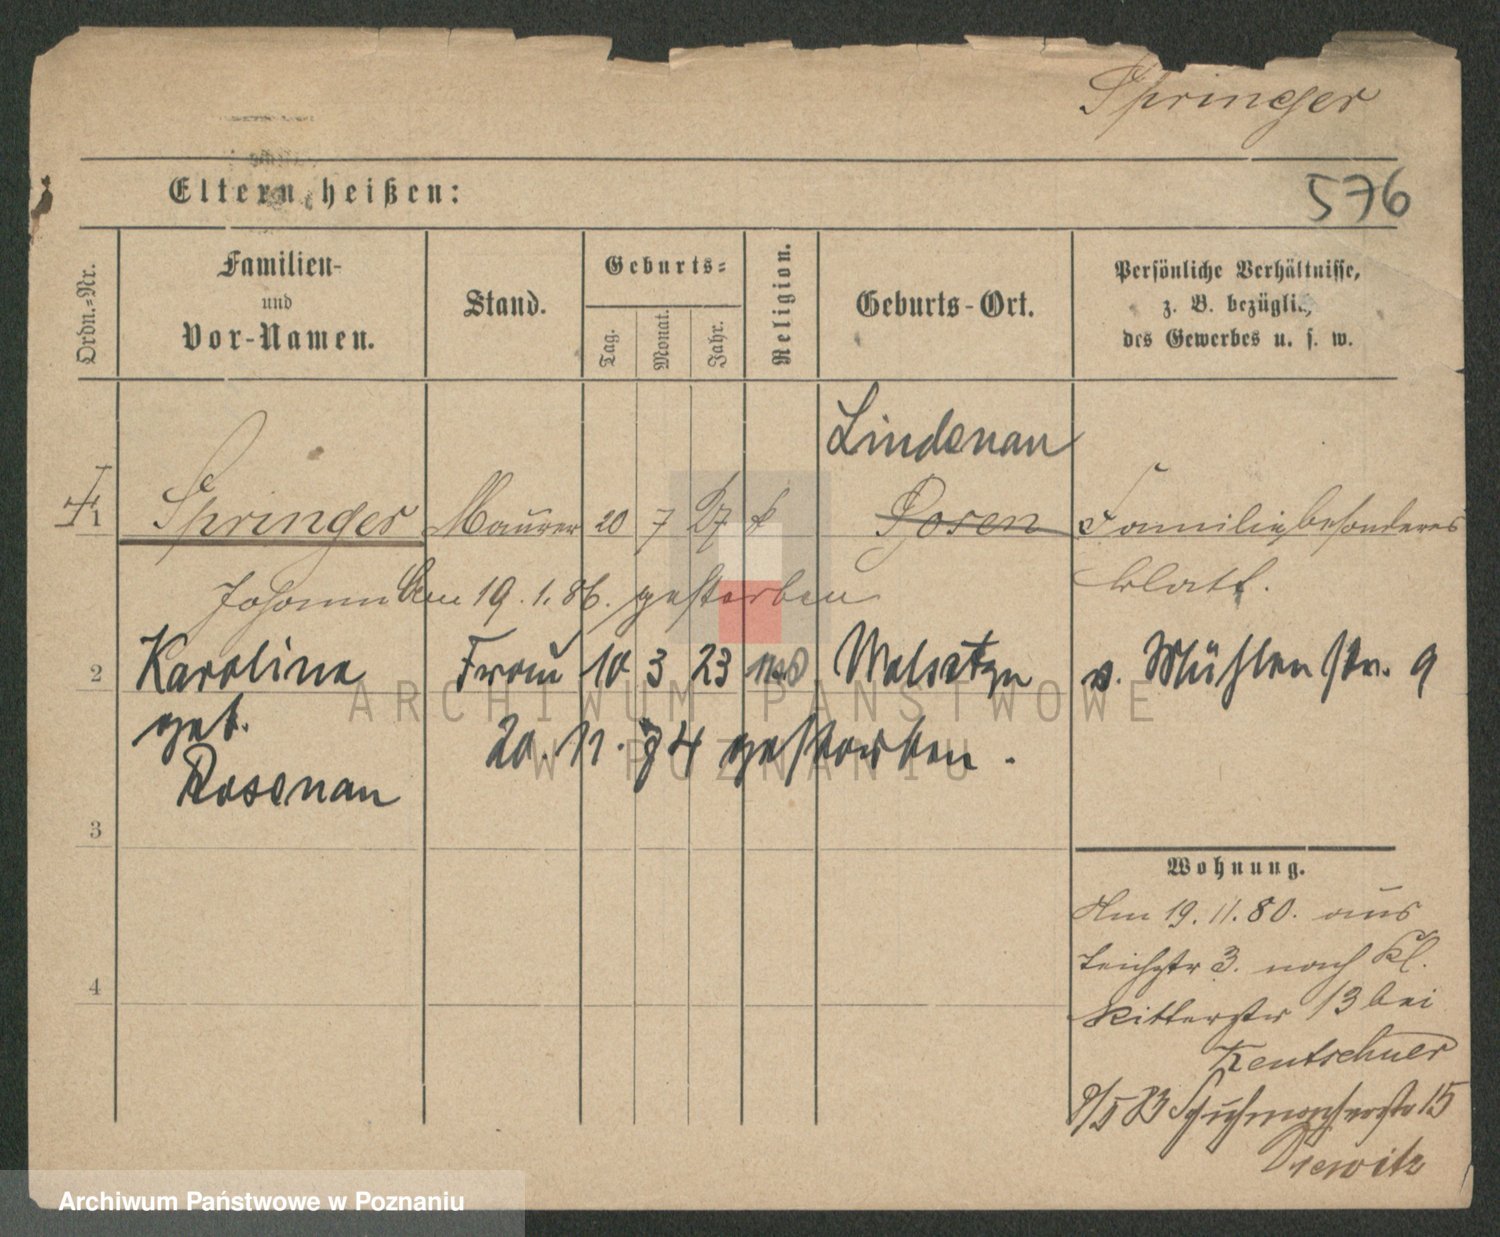 Springer
Eltern heißen:
576
Ordn.-Nr.
Familien-
und
Vor-Namen.
Stand.
Geburts-
Tag.
Monat.
Jahr.
Religion.
Geburts-Ort.
Persönliche Verhältnisse,
z. B. bezügli
des Gewerbes u. s. w.
Lindenau
1 Springer Maurer 20 7 27 k Posen Familie besonderes
Johann Am 19.1.86. gestorben Blatt.
2 Karoline Frau 10 3 23 v. Mühlenstr. 9
geb. 20. 11. 84 gestorben.
Rosenau
3
Wohnung.
Am 19.11.80. aus
Teichstr 3. nach Kl.
4
Ritterstr 13 bei
Rentschuer
9/5 83 Schuhmacherstr 15
Drewitz
ARCHIWUM PAŃSTWOWE
W POZNANIU
Archiwum Państwowe w Poznaniu